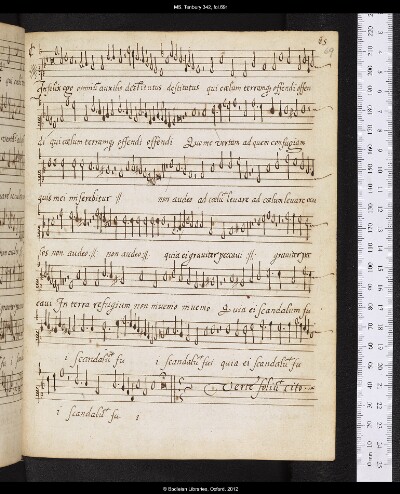 MS. Tenbury 342, fol.69r
85
69
Infelix ego omniũ auxilio destitutus destitutus qui cœlum terramq; offendi offen
di qui cœlum terramq; offendi offendi Quo me vertam ad quem confugiam
quis mei miserebitur :||: non audeo ad cœlũ levare ad cœlum levare ocu
los non audeo :||: non audeo :||: quia ei graviter peccavi :||: graviter pec
cavi In terra refugium non invenio invenio Quia ei scandalum fu
i scandalũ fu i scandalũ fui quia ei scandalũ fu
Verte foliũ cito
i scandalũ fu i
© Bodleian Libraries, Oxford, 2012